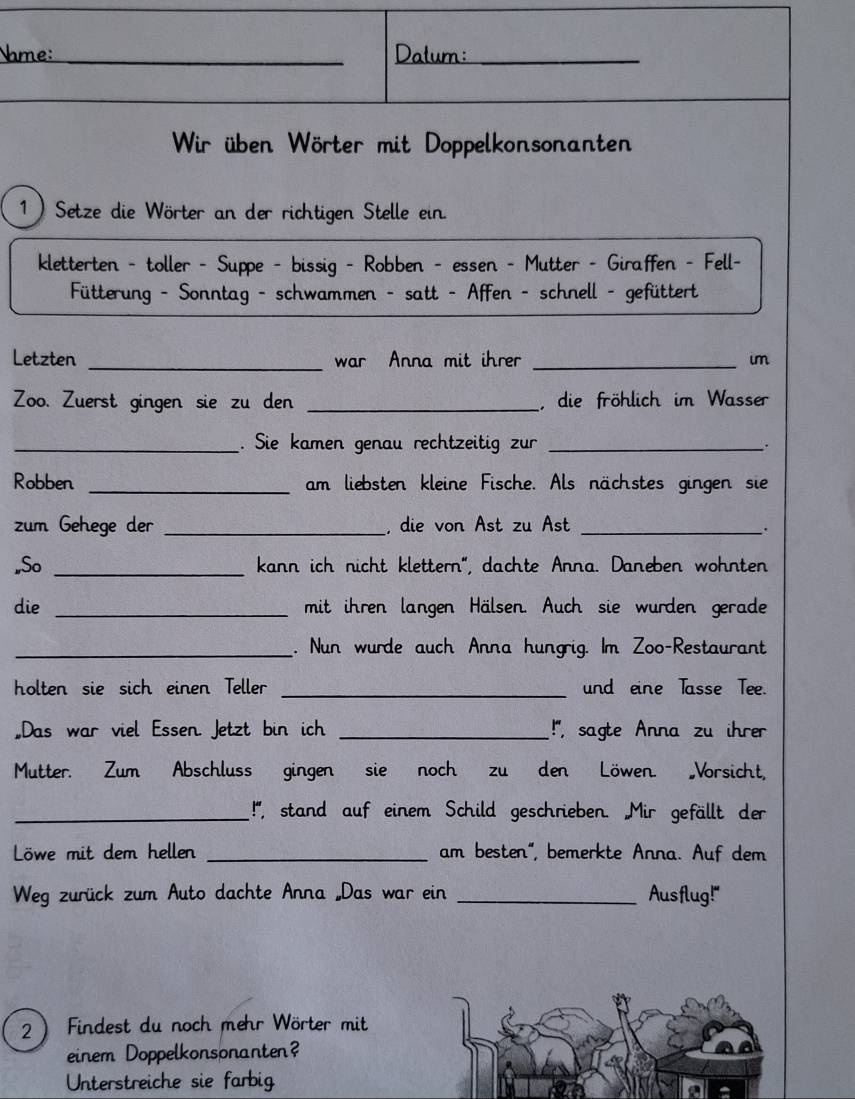 Name: ____________ Datum: ____________
Wir üben Wörter mit Doppelkonsonanten
1 Setze die Wörter an der richtigen Stelle ein.
kletterten - toller - Suppe - bissig - Robben - essen - Mutter - Giraffen - Fell-
Fütterung - Sonntag - schwammen - satt - Affen - schnell - gefüttert
Letzten ____________ war Anna mit ihrer ____________ im
Zoo. Zuerst gingen sie zu den ____________, die fröhlich im Wasser
____________. Sie kamen genau rechtzeitig zur ____________.
Robben ____________ am liebsten kleine Fische. Als nächstes gingen sie
zum Gehege der ____________, die von Ast zu Ast ____________.
„So ____________ kann ich nicht klettern“, dachte Anna. Daneben wohnten
die ____________ mit ihren langen Hälsen. Auch sie wurden gerade
____________. Nun wurde auch Anna hungrig. Im Zoo-Restaurant
holten sie sich einen Teller ____________ und eine Tasse Tee.
„Das war viel Essen. Jetzt bin ich ____________!“, sagte Anna zu ihrer
Mutter. Zum Abschluss gingen sie noch zu den Löwen. „Vorsicht,
____________!“, stand auf einem Schild geschrieben. „Mir gefällt der
Löwe mit dem hellen ____________ am besten“, bemerkte Anna. Auf dem
Weg zurück zum Auto dachte Anna „Das war ein ____________ Ausflug!“
2 Findest du noch mehr Wörter mit
einem Doppelkonsonanten?
Unterstreiche sie farbig